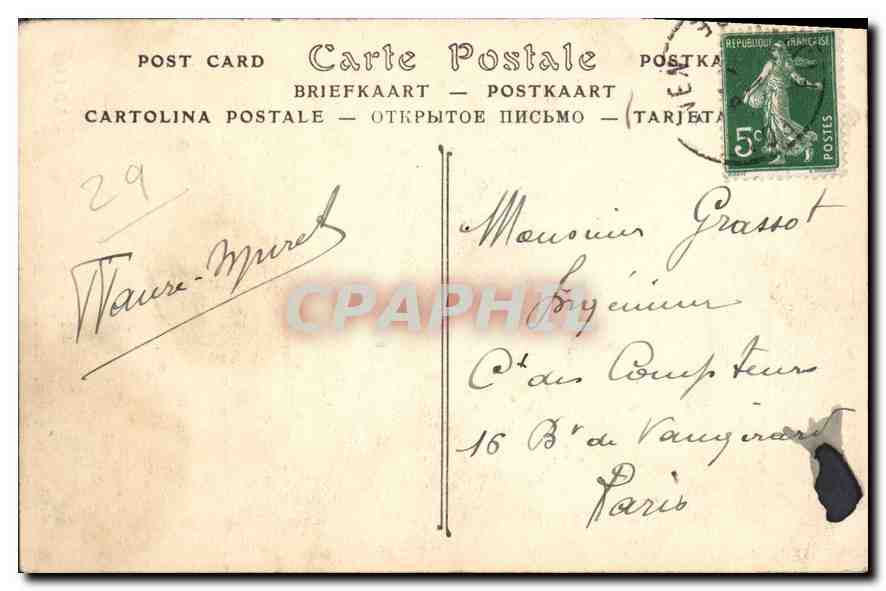 POST CARD Carte Postale POSTKA
BRIEFKAART — POSTKAART
CARTOLINA POSTALE — ОТКРЫТОЕ ПИСЬМО — TARJETA
REPUBLIQUE FRANÇAISE
5c
POSTES
29
CPAPHIL
Monsieur Grassot
Ingénieur
Ct des Compteurs
16 Br de Vaugirard
Paris